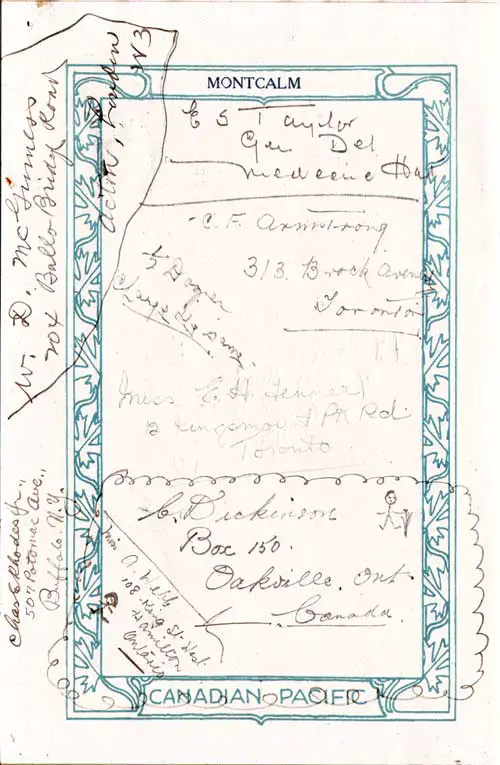 MONTCALM
E S Taylor
Gen Del
Medecine Hat
C. F. Armstrong
313. Brock Avenue
Toronto
Miss E. H.
12 Kingsmount Pk Rd
Toronto
C. Dickinson
Box 150.
Oakville. Ont.
Canada.
Miss
A. Webb
108 King St West
Hamilton
Ontario
W. D. McGuiness
204 Ballo Bridge Road
Acton, London
W3
Chas E Rhodes Jr.,
507 Potomac Ave.,
Buffalo N.Y.
CANADIAN PACIFIC